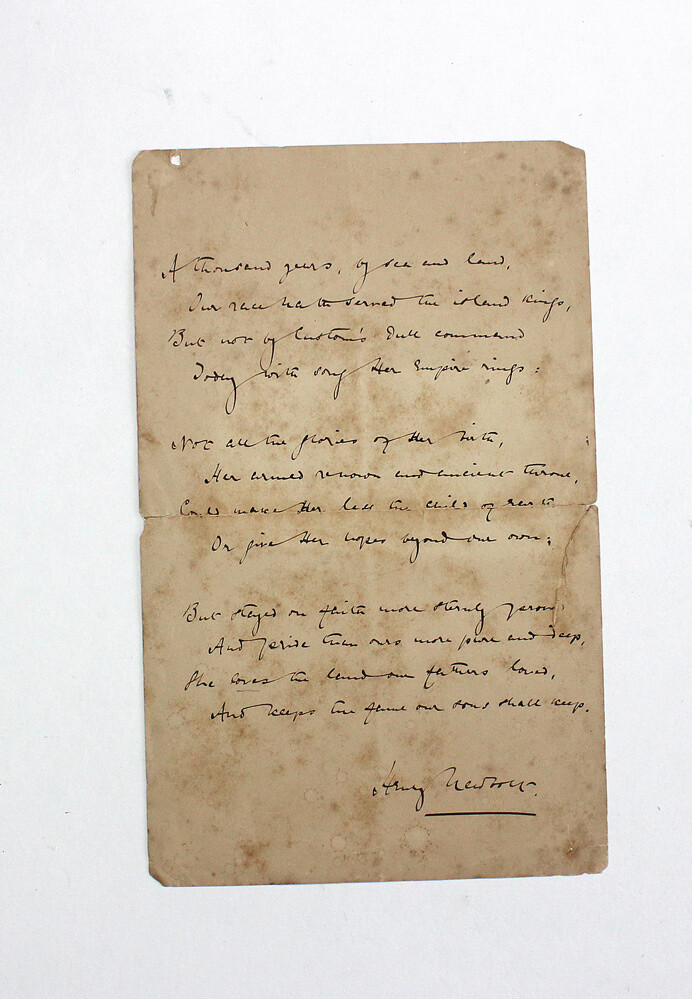 A thousand years, by sea and land,
Our race hath served the island kings,
But not by Custom's dull command
Today with song Her Empire rings:
Not all the glories of Her birth,
Her armed renown and ancient throne,
Could make Her less the child of earth
Or give Her hopes beyond our own:
But stayed on faith more sternly proved
And pride than ours more pure and deep,
She loves the land our fathers loved,
And keeps the fame our sons shall keep.
Henry Newbolt.